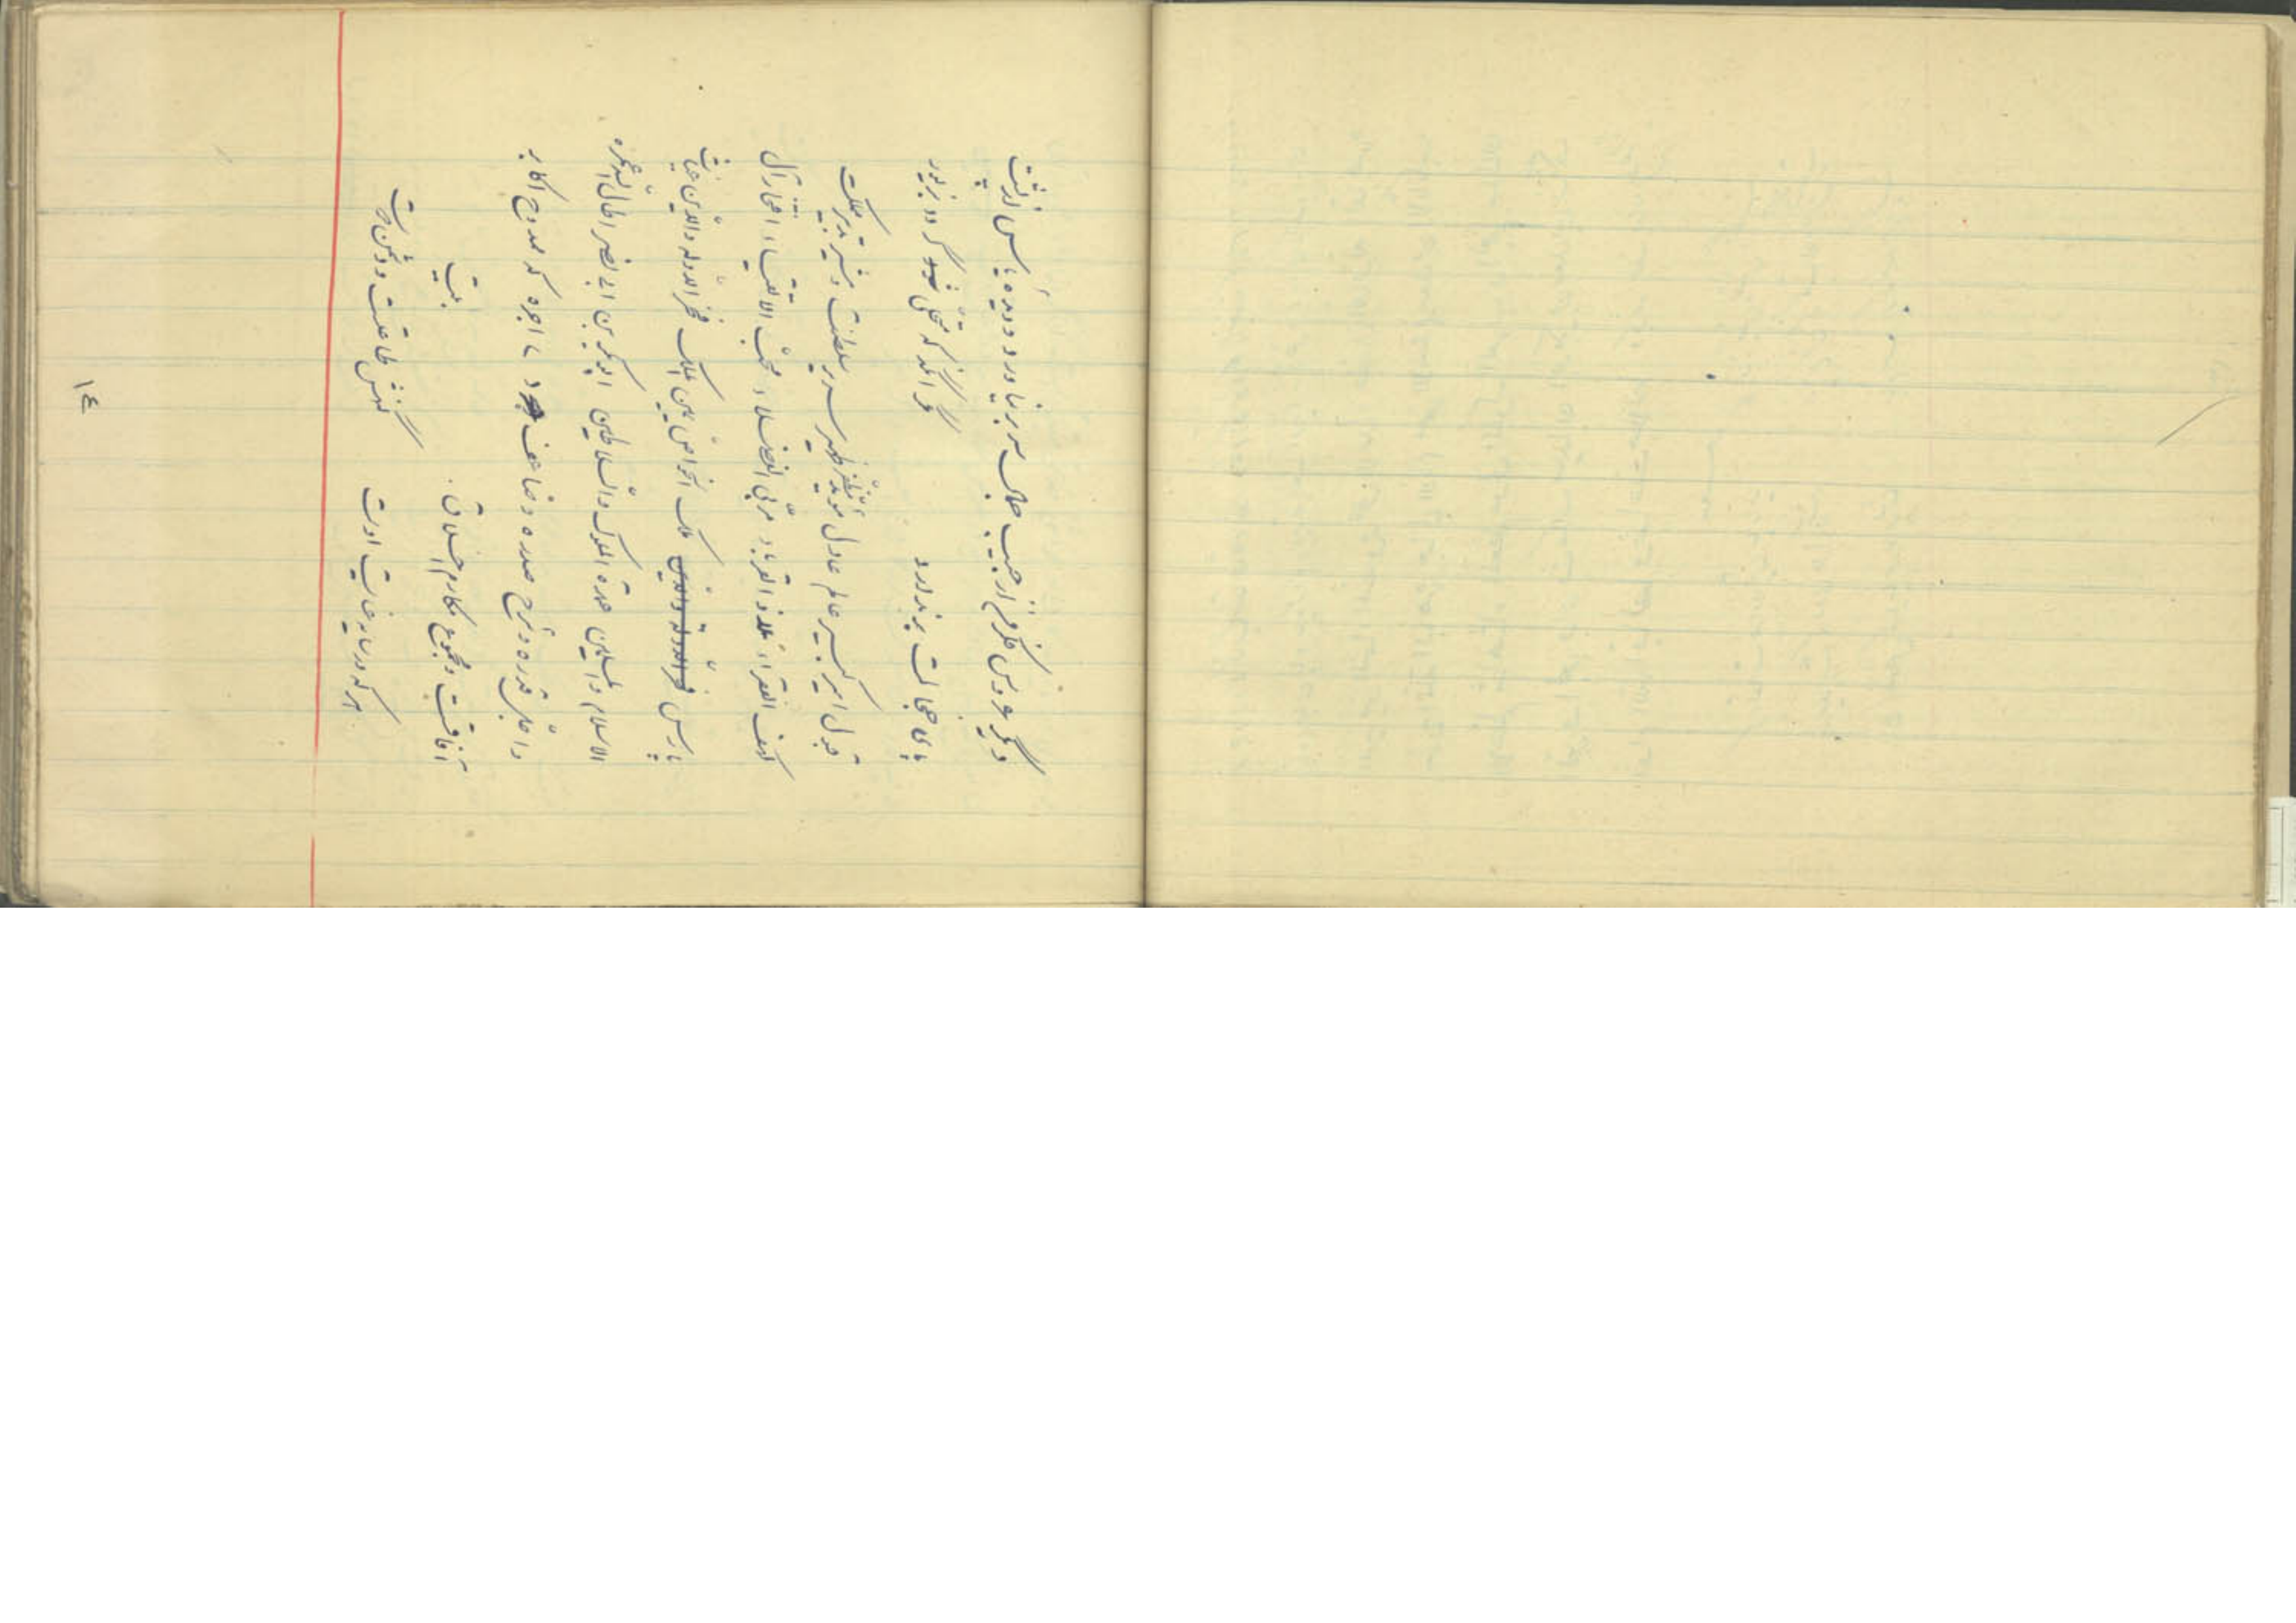 دیگر عروس فکر من از بی جمالی سر بر نیارد و دیده یأس از پشت
پای خجالت بر ندارد مگر آنگه که متحلی گردد بزیور
قبول امیر کبیر عالم عادل مؤید مظفر ظهیر سریر سلطنت و مشیر تدبیر مملکت
کهف الفقراء ملاذ الغرباء مربّی الفضلاء محبّ الاتقیاء افتخار آل
پارس فخر الدولة والدین ملک الخواص یمین الملک فخر الدوله والدین غیاث
الاسلام والمسلمین عمدة الملوک والسّلاطین ابوبکر بن ابی نصر اطال الله عمره
و اجلّ قدره و شرح صدره و ضاعف اجره که ممدوح اکابر
آفاقست و مجموع مکارم اخلاق. بیت
هر که در سایه عنایت اوست گنهش طاعتست و دشمن دوست
١٤